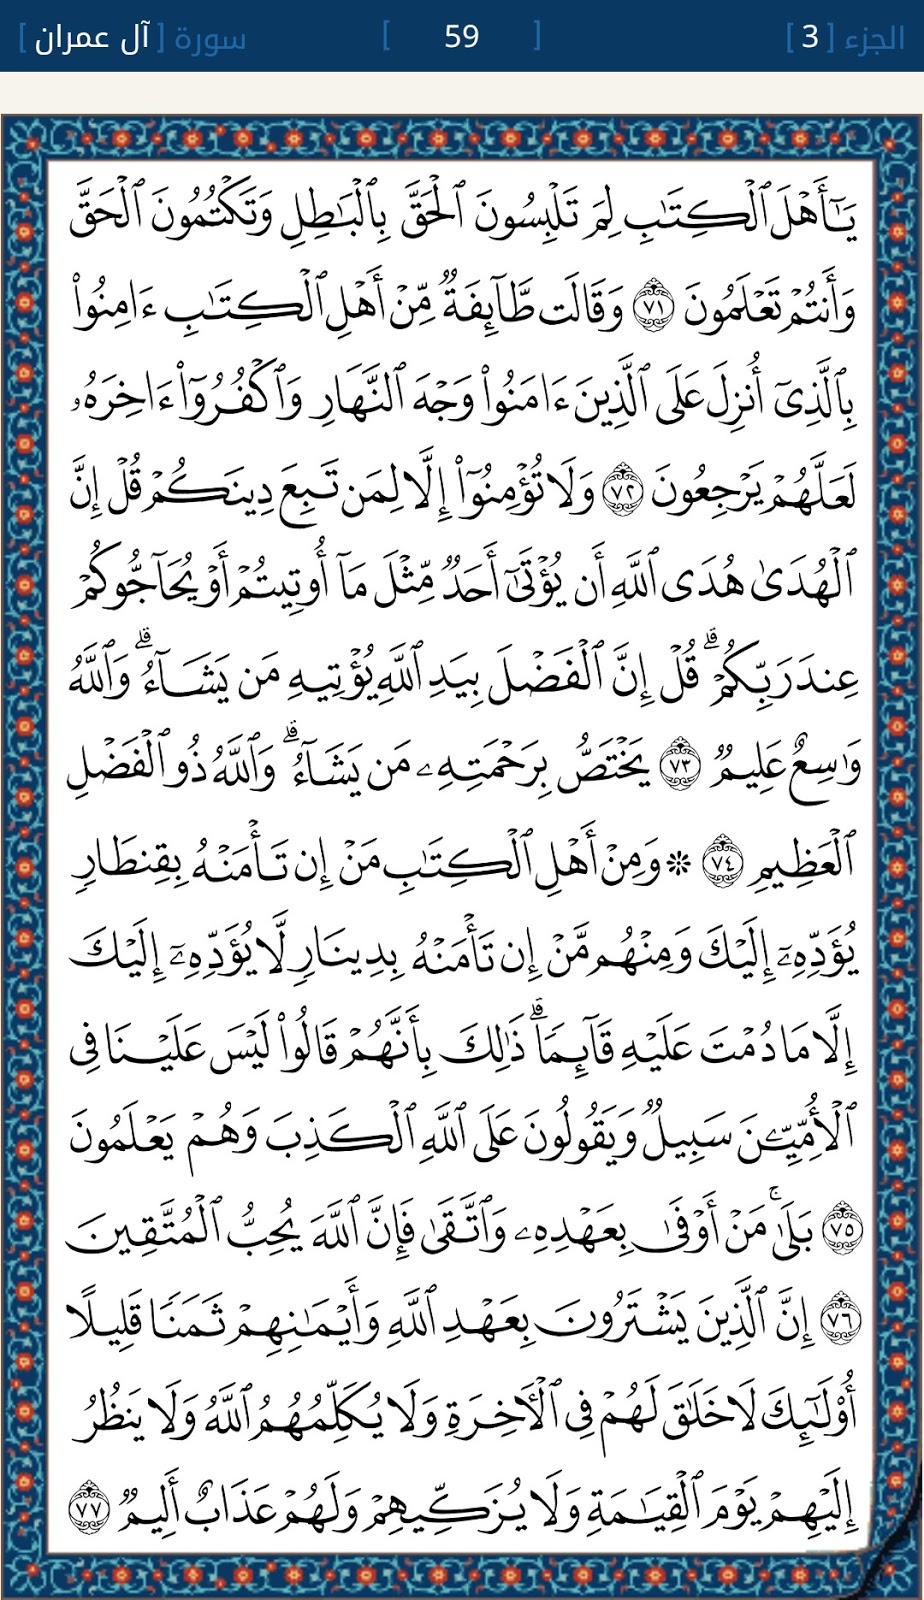 الجزء [ 3 ] [ 59 ] سورة [ آل عمران ]
يَـٰٓأَهۡلَ ٱلۡكِتَـٰبِ لِمَ تَلۡبِسُونَ ٱلۡحَقَّ بِٱلۡبَـٰطِلِ وَتَكۡتُمُونَ ٱلۡحَقَّ
وَأَنتُمۡ تَعۡلَمُونَ ٧١ وَقَالَت طَّآئِفَةٌ مِّنۡ أَهۡلِ ٱلۡكِتَـٰبِ ءَامِنُواْ
بِٱلَّذِيٓ أُنزِلَ عَلَى ٱلَّذِينَ ءَامَنُواْ وَجۡهَ ٱلنَّهَارِ وَٱكۡفُرُوٓاْ ءَاخِرَهُۥ
لَعَلَّهُمۡ يَرۡجِعُونَ ٧٢ وَلَا تُؤۡمِنُوٓاْ إِلَّا لِمَن تَبِعَ دِينَكُمۡ قُلۡ إِنَّ
ٱلۡهُدَىٰ هُدَى ٱللَّهِ أَن يُؤۡتَىٰٓ أَحَدٌ مِّثۡلَ مَآ أُوتِيتُمۡ أَوۡ يُحَآجُّوكُمۡ
عِندَ رَبِّكُمۡۗ قُلۡ إِنَّ ٱلۡفَضۡلَ بِيَدِ ٱللَّهِ يُؤۡتِيهِ مَن يَشَآءُۗ وَٱللَّهُ
وَٰسِعٌ عَلِيمٌ ٧٣ يَخۡتَصُّ بِرَحۡمَتِهِۦ مَن يَشَآءُۗ وَٱللَّهُ ذُو ٱلۡفَضۡلِ
ٱلۡعَظِيمِ ٧٤ ۞ وَمِنۡ أَهۡلِ ٱلۡكِتَـٰبِ مَنۡ إِن تَأۡمَنۡهُ بِقِنطَارٍ
يُؤَدِّهِۦٓ إِلَيۡكَ وَمِنۡهُم مَّنۡ إِن تَأۡمَنۡهُ بِدِينَارٍ لَّا يُؤَدِّهِۦٓ إِلَيۡكَ
إِلَّا مَا دُمۡتَ عَلَيۡهِ قَآئِمًاۗ ذَٰلِكَ بِأَنَّهُمۡ قَالُواْ لَيۡسَ عَلَيۡنَا فِي
ٱلۡأُمِّيِّـۧنَ سَبِيلٌ وَيَقُولُونَ عَلَى ٱللَّهِ ٱلۡكَذِبَ وَهُمۡ يَعۡلَمُونَ
٧٥ بَلَىٰۚ مَنۡ أَوۡفَىٰ بِعَهۡدِهِۦ وَٱتَّقَىٰ فَإِنَّ ٱللَّهَ يُحِبُّ ٱلۡمُتَّقِينَ
٧٦ إِنَّ ٱلَّذِينَ يَشۡتَرُونَ بِعَهۡدِ ٱللَّهِ وَأَيۡمَـٰنِهِمۡ ثَمَنًا قَلِيلًا
أُوْلَـٰٓئِكَ لَا خَلَـٰقَ لَهُمۡ فِي ٱلۡأٓخِرَةِ وَلَا يُكَلِّمُهُمُ ٱللَّهُ وَلَا يَنظُرُ
إِلَيۡهِمۡ يَوۡمَ ٱلۡقِيَـٰمَةِ وَلَا يُزَكِّيهِمۡ وَلَهُمۡ عَذَابٌ أَلِيمٌ ٧٧